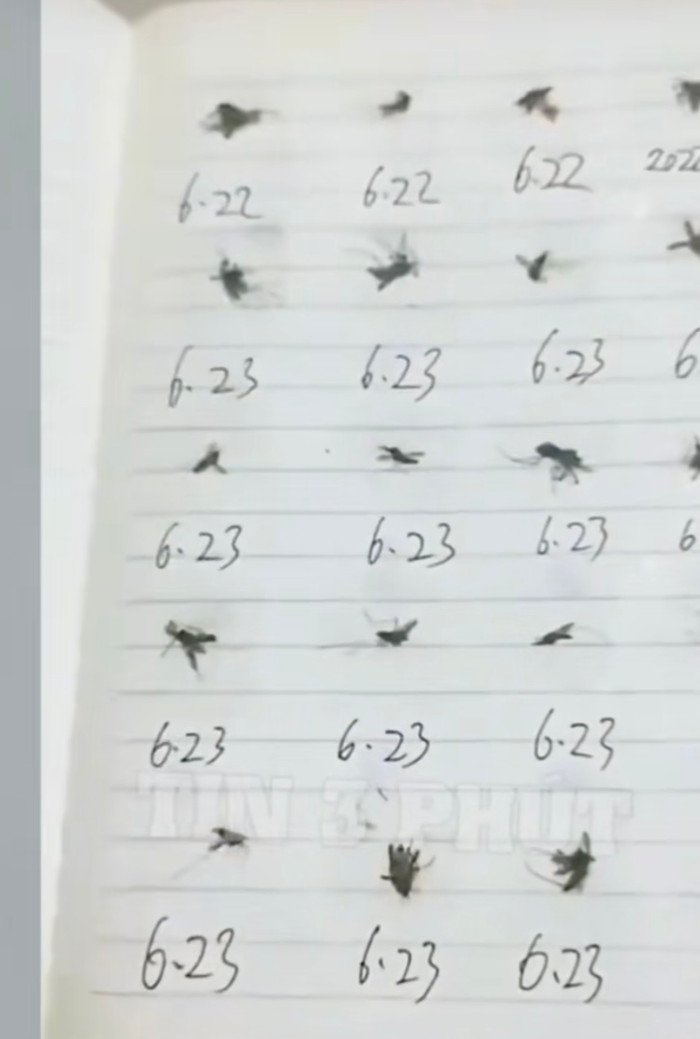 6.22 6.22 6.22
6.23 6.23 6.23 6
6.23 6.23 6.23 6
6.23 6.23 6.23
TIN 3 PHÚT
6.23 6.23 6.23